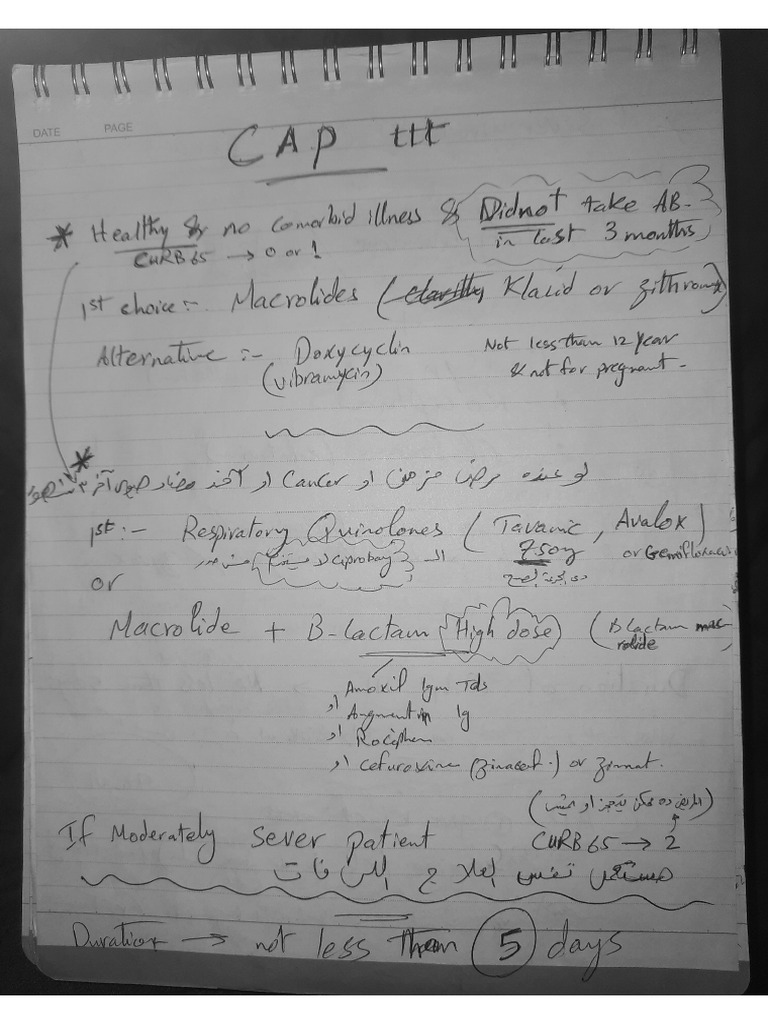 DATE PAGE
CAP ttt
* Healthy & no comorbid illness & Didnot take AB.
in last 3 months
CURB65 → 0 or 1
1st choice :- Macrolides ( Klacid or zithromax)
Alternative :- Doxycyclin Not less than 12 year
(vibramycin) & not for pregnant -
*
لو عنده مرض مزمن او Cancer او آخذ مضاد حيوى آخر ٣ شهور
1st :- Respiratory Quinolones ( Tavanic , Avalox )
750 or Gemifloxacin
الـ ciprobay لا
or
Macrolide + B-lactam (High dose) (B lactam
rolide
Amoxil 1gm Tds
او Augmentin 1g
او Rociphen
او cefuroxime (zinacef.) or zinnat.
(المريض ده ممكن يتحجز او
If Moderately sever patient CURB65 → 2
هستعمل نفس العلاج اللى فات
Duration → not less than 5 days